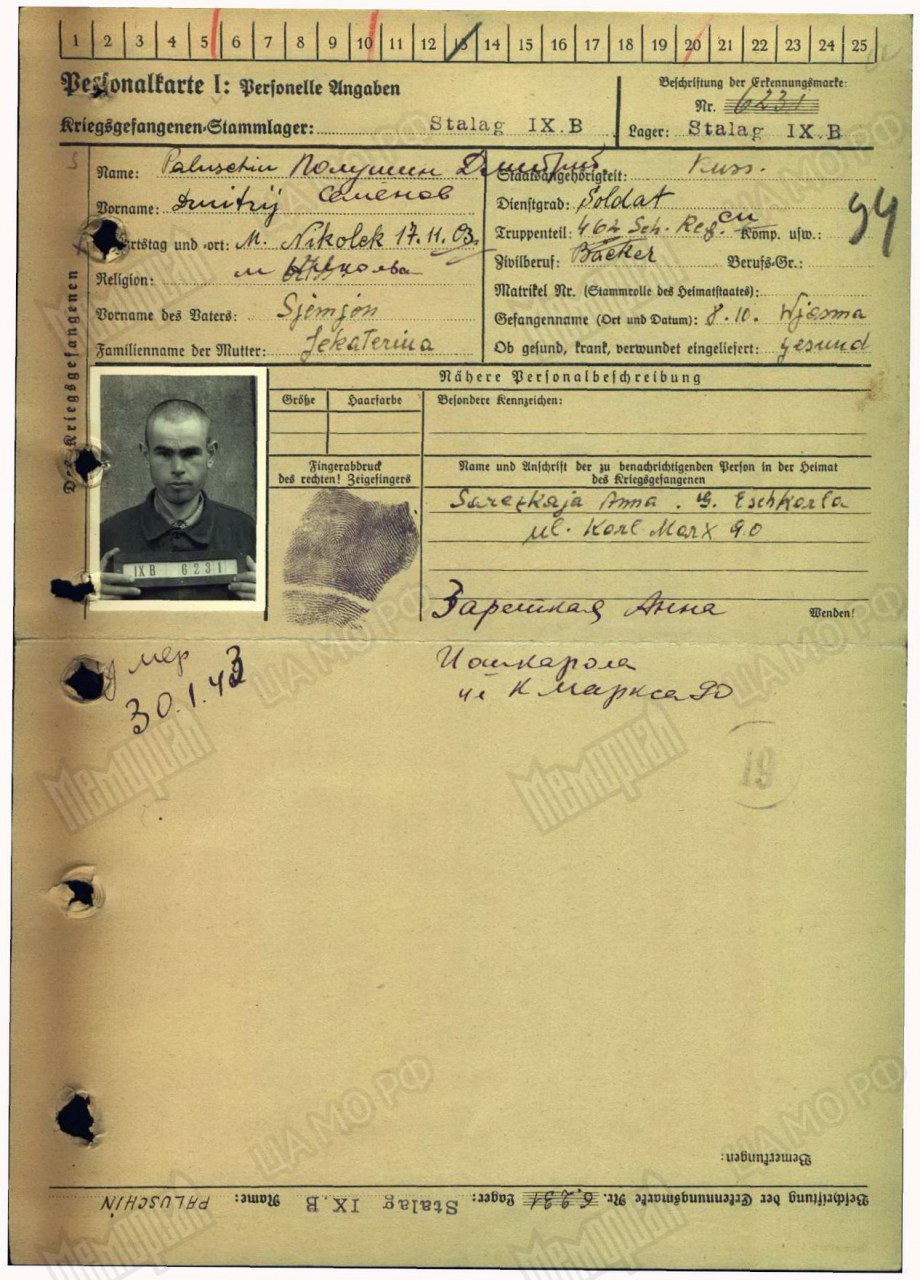 1 2 3 4 5 6 7 8 9 10 11 12 13 14 15 16 17 18 19 20 21 22 23 24 25
Personalkarte I: Personelle Angaben
Beschriftung der Erkennungsmarke:
Nr. 6231
Kriegsgefangenen-Stammlager: Stalag IX.B
Lager: Stalag IX.B
Des Kriegsgefangenen
Name: Paluschin Полушин Дмитрий
Staatsangehörigkeit: Russ.
Vorname: Dmitrij Семёнов
Dienstgrad: Soldat
Truppenteil: 462 Sch. Reg. Komp. usw.:
сп
94
rtstag und -ort: M. Nikolek 17.11.03.
Zivilberuf: Bäcker Berufs-Gr.:
Religion:
Matrikel Nr. (Stammrolle des Heimatstaates):
Vorname des Vaters: Sjemjon
Gefangennahme (Ort und Datum): 8.10. Wjasma
Familienname der Mutter: Jekaterina
Ob gesund, krank, verwundet eingeliefert: gesund
Nähere Personalbeschreibung
Größe Haarfarbe Besondere Kennzeichen:
IX B 6231
Fingerabdruck
des rechten! Zeigefingers
Name und Anschrift der zu benachrichtigenden Person in der Heimat
des Kriegsgefangenen
Sarezkaja Anna . G. Eschkarla
ul. Karl Marx 90
Зарецкая Анна
Wenden!
Умер
30.1.43
Ошкарола
ул К Маркса 90
19
Bemerkungen:
Beschriftung der Erkennungsmarke Nr. 6231 Lager: Stalag IX.B Name: PALUSCHIN
Мемориал
ЦАМО РФ